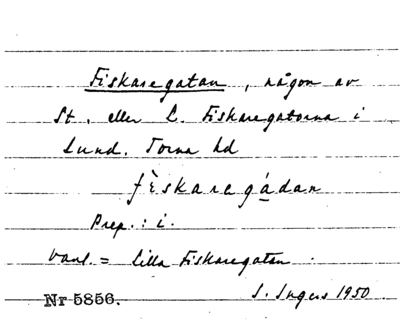 Fiskaregatan, någon av
St. eller L. Fiskaregatorna i
Lund. Torna hd
fèskaregádan
Prep.: i.
Vanl. = Lilla Fiskaregatan.
I. Ingers 1950
Nr 5856.